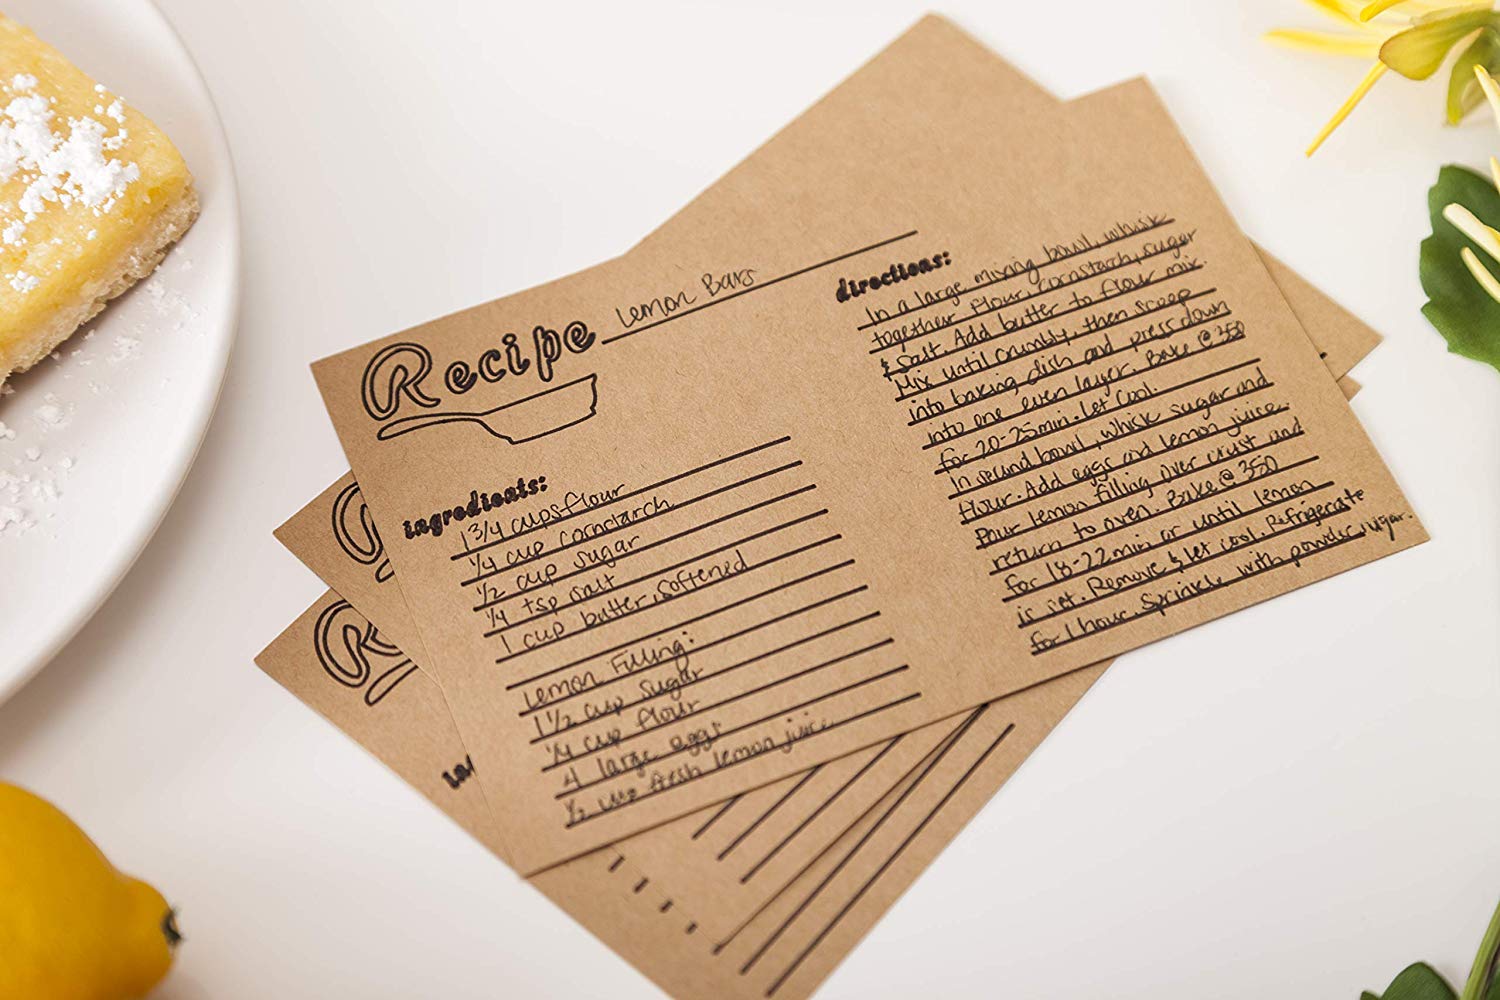 Recipe Lemon Bars
ingredients:
1 3/4 cups flour
1/4 cup cornstarch
1/2 cup sugar
1/4 tsp salt
1 cup butter, softened
Lemon Filling:
1 1/2 cup sugar
1/4 cup flour
4 large eggs
1/2 cup fresh lemon juice
directions:
In a large mixing bowl, whisk
together flour, cornstarch, sugar
& salt. Add butter to flour mix.
Mix until crumbly, then scoop
into baking dish and press down
into one even layer. Bake @ 350
for 20-25 min. Let cool.
In second bowl, whisk sugar and
flour. Add eggs and lemon juice.
Pour lemon filling over crust and
return to oven. Bake @ 350
for 18-22 min or until lemon
is set. Remove & let cool. Refrigerate
for 1 hour. Sprinkle with powder sugar.